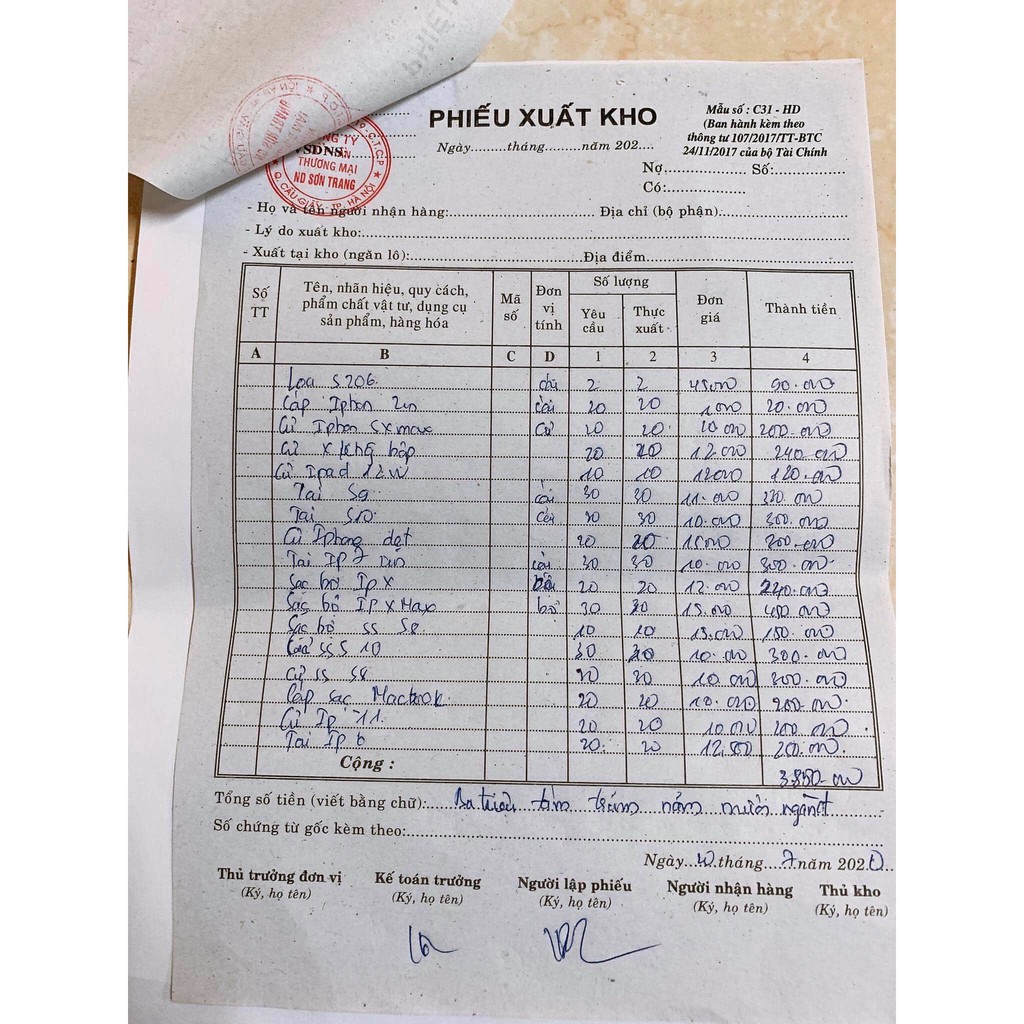 PHIẾU XUẤT KHO
Mẫu số : C31 - HD
(Ban hành kèm theo
thông tư 107/2017/TT-BTC
24/11/2017 của bộ Tài Chính
Ngày.........tháng..........năm 202....
VSDNS
THƯƠNG MẠI
ND SƠN TRANG
Q. CẦU GIẤY - TP. HÀ NỘI
Nợ................... Số:................
Có:..................
- Họ và tên người nhận hàng:........................... Địa chỉ (bộ phận)...........................
- Lý do xuất kho:..........................................................................................
- Xuất tại kho (ngăn lô):................................ Địa điểm........................................
Số TT | Tên, nhãn hiệu, quy cách, phẩm chất vật tư, dụng cụ sản phẩm, hàng hóa | Mã số | Đơn vị tính | Số lượng | Đơn giá | Thành tiền
Yêu cầu | Thực xuất
A B C D 1 2 3 4
Loa S206 2 2 45.000 90.000
Cáp Iphon Zin cái 20 20 1000 20.000
Củ Iphon SX max củ 20 20 10.000 200.000
Củ X không hộp 20 20 12.000 240.000
Củ Ipad 12W 10 10 12000 120.000
Tai S9 cái 30 30 11.000
Tai S10 30 30 10.000 300.000
Củ Iphong dẹt 20 20
Tai IP 7 Zin cái 30 30 10.000 300.000
Sạc bộ Ip X bộ 20 20 12.000 240.000
Sạc bộ IP X Max bộ 30 15.000
Sạc bộ SS S8 10 10 15.000 150.000
SS S10 30 10.000 300.000
Củ SS S8 30 30 10.000 300.000
Cáp sạc Macbook 20 20 10.000 200.000
Củ Ip 11 20 20 10.000 200.000
Tai IP 6 20 20
Cộng :
3.850.000
Tổng số tiền (viết bằng chữ): Ba triệu tám trăm năm mươi ngàn
Số chứng từ gốc kèm theo:..........................................................................
Ngày.........tháng....7năm 2020...
Thủ trưởng đơn vị Kế toán trưởng Người lập phiếu Người nhận hàng Thủ kho
(Ký, họ tên) (Ký, họ tên) (Ký, họ tên) (Ký, họ tên) (Ký, họ tên)